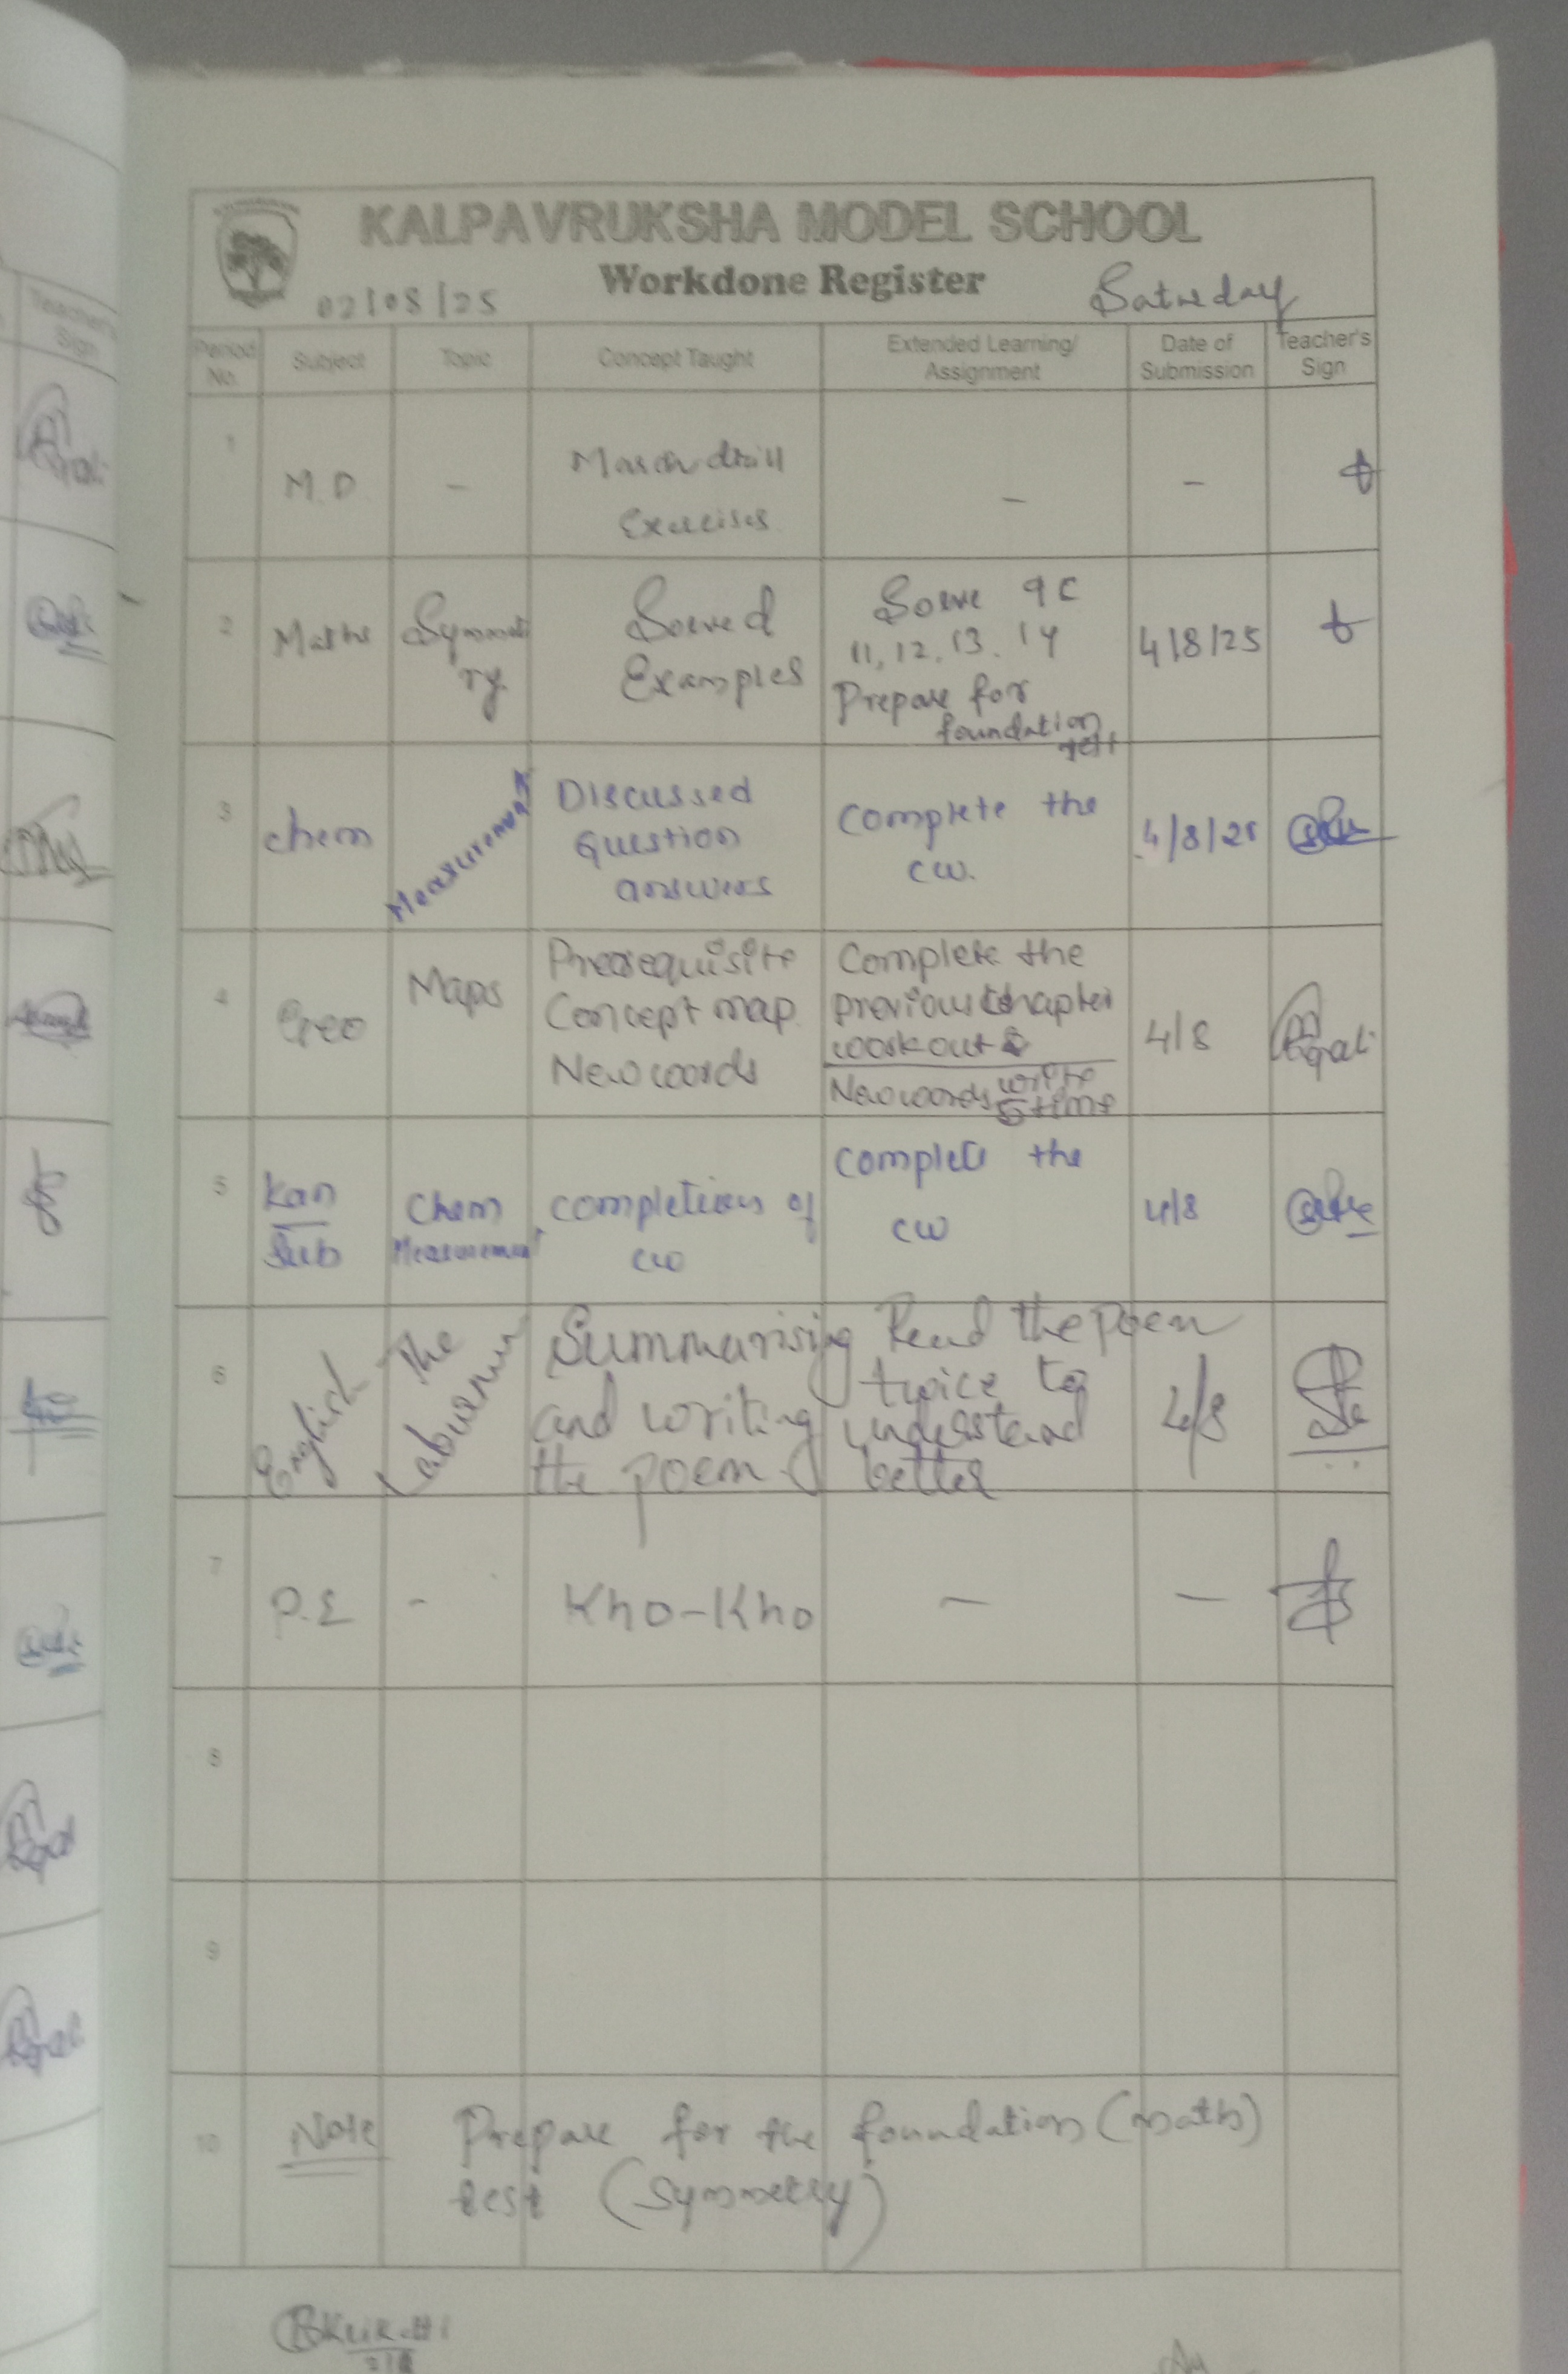 KALPAVRUKSHA MODEL SCHOOL
Workdone Register
02/08/25
Saturday
Period No.
Subject
Topic
Concept Taught
Extended Learning/
Assignment
Date of
Submission
Teacher's
Sign
1
M.D
-
March drill
Exercises
-
-
2
Maths
Symmet
ry
Solved
Examples
Solve 9C
11, 12, 13, 14
Prepare for
foundation
test
4/8/25
3
chem
Measurement
Discussed
Question
answers
Complete the
cw.
4/8/25
4
Geo
Maps
Prerequisite
Concept map
New words
Complete the
previous chapter
workout
New words write
5 time
4/8
5
Kan
Sub
Chem
Measurement
completion of
cw
complete the
cw
4/8
6
English
The
Laburnum
Summarising
and writing
the poem
Read the poem
twice to
understand
better
4/8
7
P.E
-
Kho-Kho
-
-
8
9
10
Note
Prepare for the foundation (maths)
test (Symmetry)
Teacher's
Sign